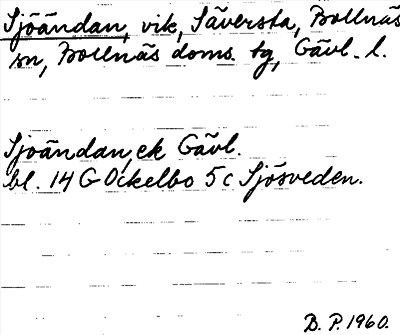 Sjöändan, vik, Säversta, Bollnäs
sn, Bollnäs doms. tg, Gävl. l.
Sjöändan, ek Gävl.
bl. 14 G Ockelbo 5 c Sjösveden.
B. P. 1960.